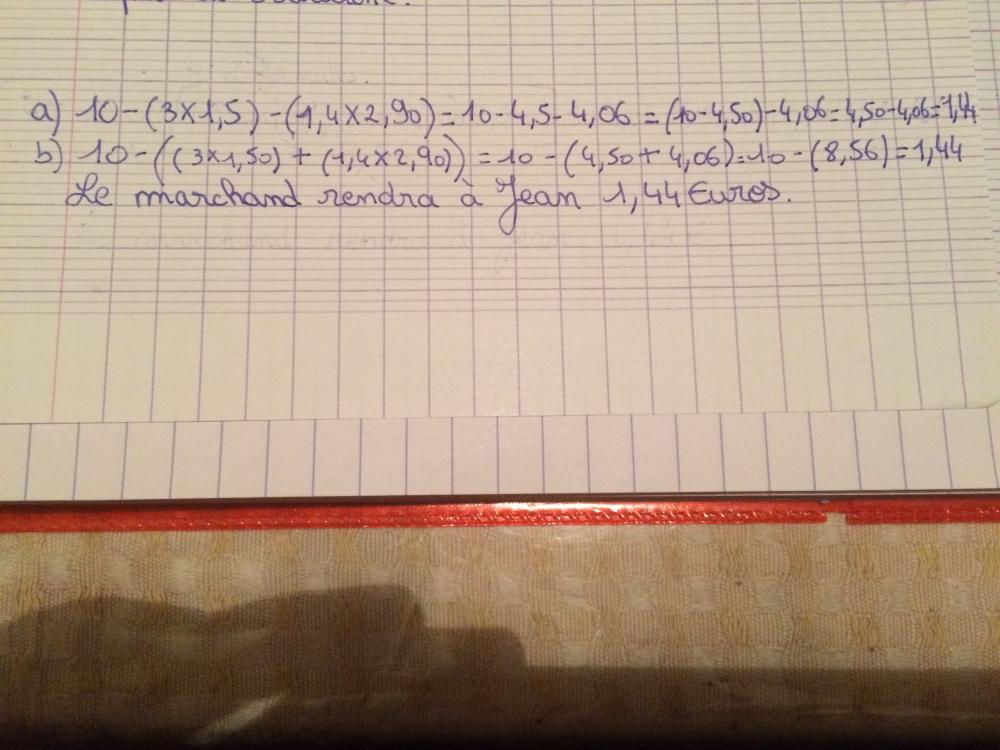 a) 10-(3x1,5)-(1,4x2,90)=10-4,5-4,06=(10-4,50)-4,06=4,50-4,06=1,44
b) 10-((3x1,50)+(1,4x2,90))=10-(4,50+4,06)=10-(8,56)=1,44
Le marchand rendra à Jean 1,44 Euros.